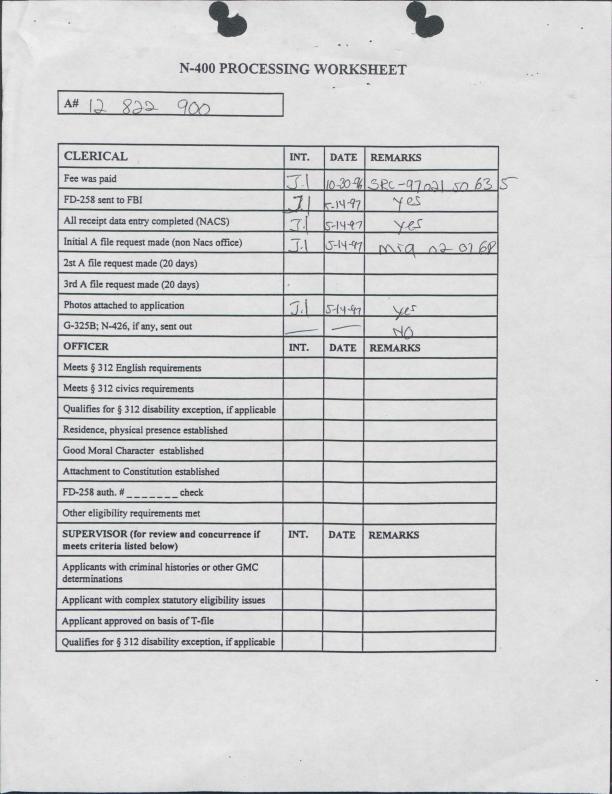 N-400 PROCESSING WORKSHEET
A# 12 822 900
CLERICAL INT. DATE REMARKS
Fee was paid J.I 10-30-96 SRC-97021 50 63 5
FD-258 sent to FBI J.I 5-14-97 yes
All receipt data entry completed (NACS) J.I 5-14-97 yes
Initial A file request made (non Nacs office) J.I 5-14-97
2st A file request made (20 days)
3rd A file request made (20 days)
Photos attached to application J.I 5-14-97 yes
G-325B; N-426, if any, sent out — — NO
OFFICER INT. DATE REMARKS
Meets § 312 English requirements
Meets § 312 civics requirements
Qualifies for § 312 disability exception, if applicable
Residence, physical presence established
Good Moral Character established
Attachment to Constitution established
FD-258 auth. # _ _ _ _ _ _ _ check
Other eligibility requirements met
SUPERVISOR (for review and concurrence if INT. DATE REMARKS
meets criteria listed below)
Applicants with criminal histories or other GMC
determinations
Applicant with complex statutory eligibility issues
Applicant approved on basis of T-file
Qualifies for § 312 disability exception, if applicable